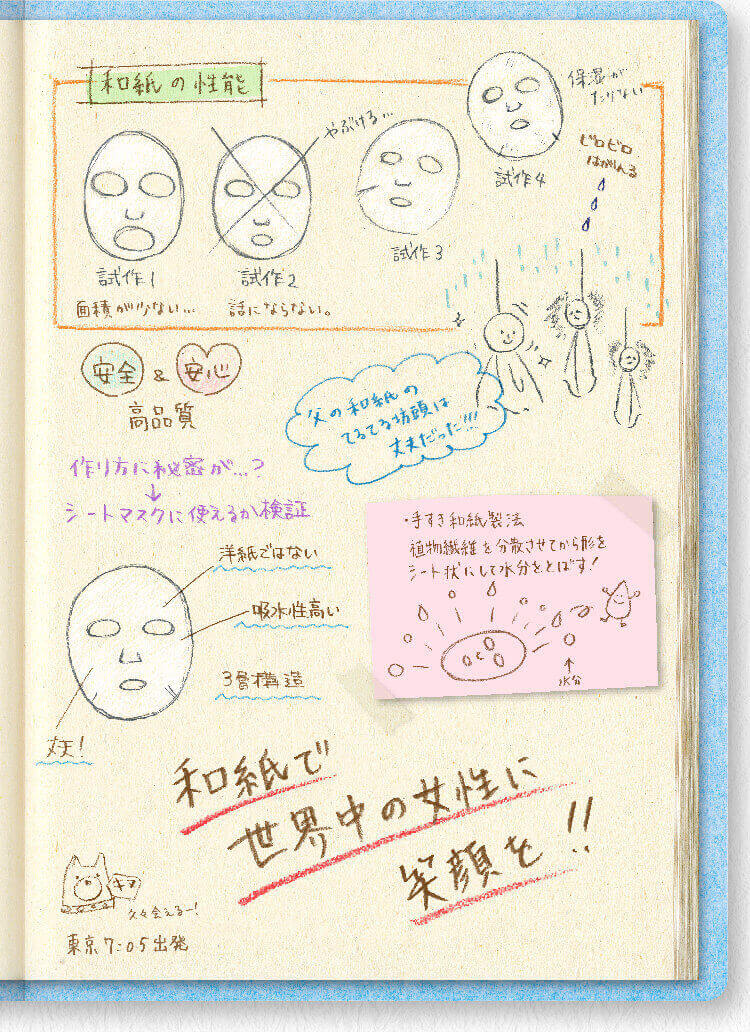 和紙の性能
保湿が
たりない
やぶける…
ビロビロ
はがれる
試作4
試作3
試作1
試作2
面積が少ない…
話にならない。
安全&安心
高品質
父の和紙の
てるてる坊頭は
丈夫だった!!!
作り方に秘密が…?
↓
シートマスクに使えるか検証
・手すき和紙製法
植物繊維を分散させてから形を
シート状にして水分をとばす!
水分
洋紙ではない
吸水性高い
3層構造
丈夫!
和紙で
世界中の女性に
笑顔を!!
久々会えるー!
東京7:05出発